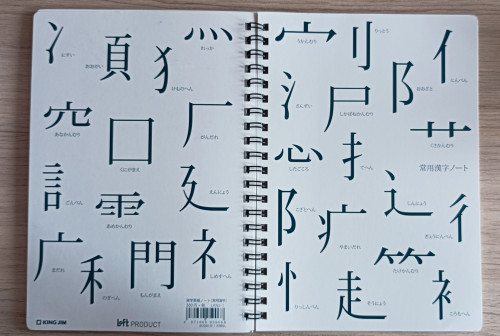 冫
にすい
頁
おおがい
犭
けものへん
灬
れっか
穴
あなかんむり
囗
くにがまえ
厂
がんだれ
訁
ごんべん
⻗
あめかんむり
廴
えんにょう
广
まだれ
禾
のぎへん
門
もんがまえ
礻
しめすへん
KING JIM
LoFt PRODUCT
宀
うかんむり
刂
りっとう
阝
おおざと
亻
にんべん
氵
さんずい
尸
しかばねかんむり
艹
くさかんむり
心
したごころ
扌
てへん
常用漢字ノート
阝
こざとへん
疒
やまいだれ
辶
しんにょう
彳
ぎょうにんべん
忄
りっしんべん
走
そうにょう
⺮
たけかんむり
衤
ころもへん